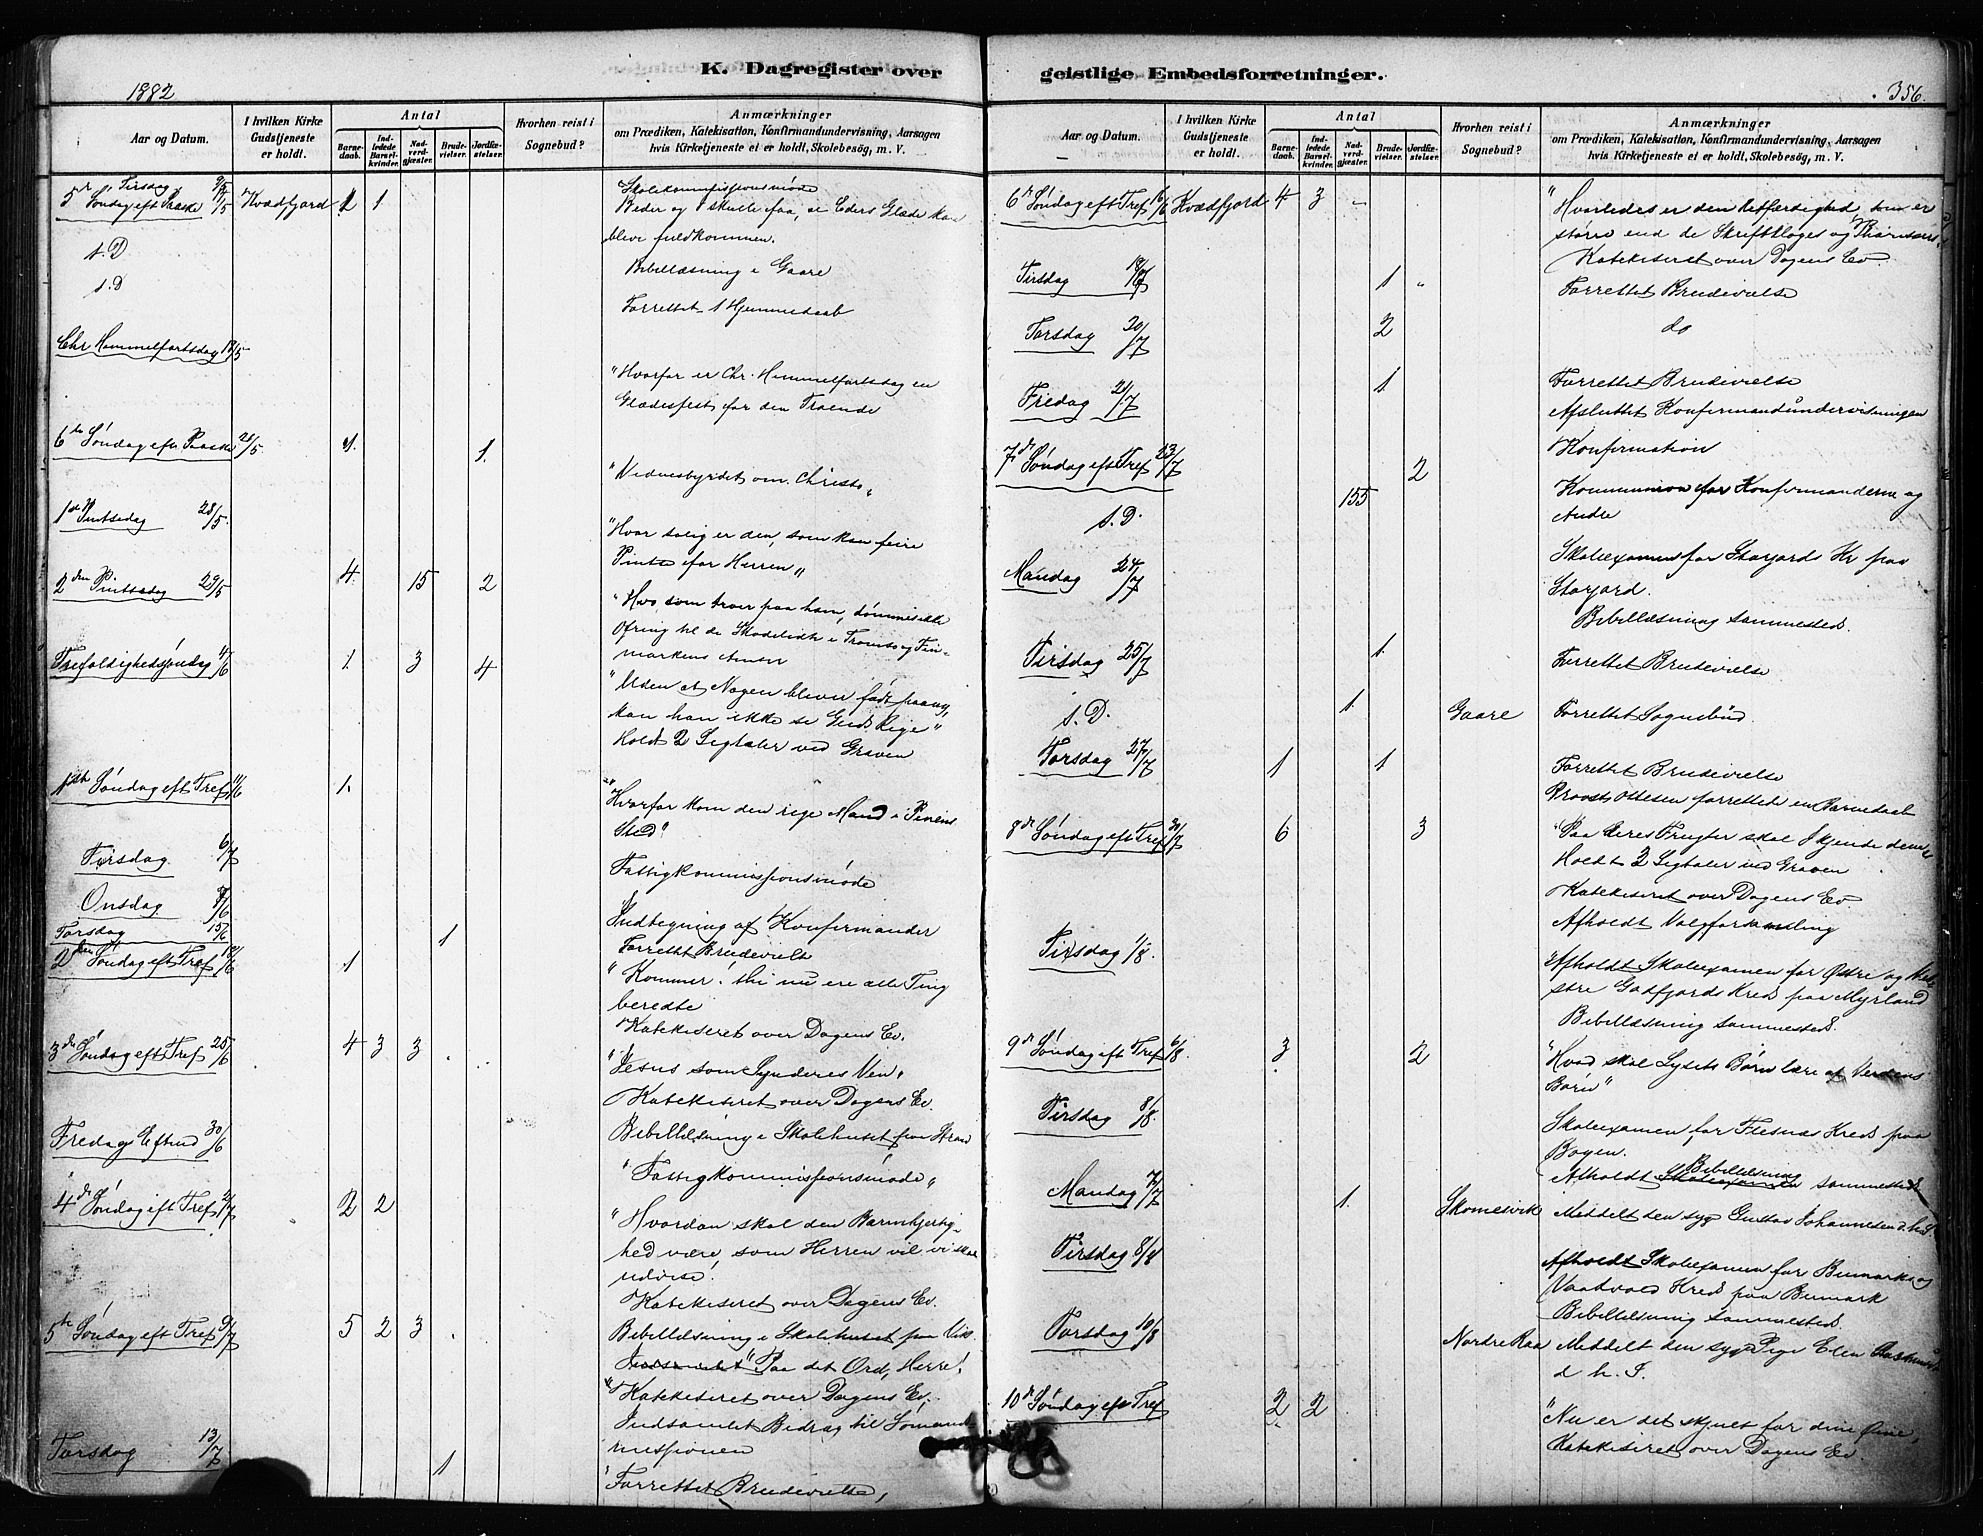 K. Dagregister over
1882
Aar og Datum.
I hvilken Kirke Gudstjeneste er holdt.
Antal
Barnedaab.
Indledede Barselkvinder.
Nadverdgjæster.
Brudevielser.
Jordfæstelser.
Hvorhen reist i Sognebud?
Anmærkninger
om Prædiken, Katekisation, Konfirmandundervisning, Aarsagen
hvis Kirketjeneste ei er holdt, Skolebesøg, m. V.
Tirsdag 9/5 Skolekommissionsmøde
5 Søndag eft Paaske 14/5 Kvædfjord 1 1 Beder og I skulle faa, at Eders Glæde kan
blive fuldkommen.
s. D Bibellæsning i Gaare
s. D Forrettet 1 Hjemmedaab
Chr Himmelfartsdag 18/5 "Hvorfor er Chr. Himmelfartsdag en
Glædesfest for den Troende
6te Søndag eft Paaske 21/5 1. 1. "Vidnesbyrdet om Christo"
1ste Pintsedag 28/5. "Hvor salig er den, som kan feire
Pintse for Herren"
2den Pintsedag 29/5 4. 15 2 "Hvo, som troer paa ham, dømmes ikke
Ofring til de Skadelidte i Tromsø og Fin-
markens Amter
Trefoldighedssøndag 4/6 1. 3 4 "Uden at Nogen bliver født paany,
kan han ikke se Guds Rige"
Holdt 2 Ligtaler ved Graven
1ste Søndag eft Tref 11/6 1. "Hvorfor kom den rige Mand i Pinens
Sted"
Tirsdag 6/7 Fattigkommissionsmøde
Onsdag /6 Indtegning af Konfirmander
Torsdag 15/6 1 Forrettet Brudevielse
2den Søndag eft Tref 18/6 1 "Kommer! thi nu ere alle Ting
beredte
Katekiseret over Dagens Ev.
3die Søndag eft Tref 25/6 4 3 3 . . "Jesus som Synderes Ven"
Katekiseret over Dagens Ev.
Bibellæsning i Skolehuset paa Strand
Fredag Eftmd 30/6 "Fattigkommissionsmøde"
4de Søndag eft Tref 2/7 2 2 "Hvordan skal den Barmhjertig-
hed være, som Herren vil vi skal
udvise!
Katekiseret over Dagens Ev.
5te Søndag eft Tref 9/7 5 2 3 . Bibellæsning i Skolehuset paa Vik.
Indsamlet "Paa dit Ord, Herre!
"Katekiseret over Dagens Ev.
Indsamlet Bidrag til Sømands
missionen
Torsdag 13/7 1 Forrettet Brudevielse,
geistlige Embedsforretninger.
356.
Aar og Datum.
I hvilken Kirke Gudstjeneste er holdt.
Antal
Barnedaab.
Indledede Barselkvinder.
Nadverdgjæster.
Brudevielser.
Jordfæstelser.
Hvorhen reist i Sognebud?
Anmærkninger
om Prædiken, Katekisation, Konfirmandundervisning, Aarsagen
hvis Kirketjeneste ei er holdt, Skolebesøg, m. V.
6te Søndag eft Tref 16/6 Kvædfjord 4 3 "Hvorledes er den Retfærdighed, som er
større end de Skriftkloges og Pharisæers
Katekiseret over Dagens Ev.
Tirsdag 18/7 1 " Forrettet Brudevielse
Torsdag 20/7 2 do
Fredag 21/7 1 Forrettet Brudevielse
Afsluttet Konfirmandundervisningen
7de Søndag eft Tref 23/7 2 Konfirmation
s. D. 155 Kommunion for Konfirmanderne og
Andre
Mandag 24/7 Skoleexamen for Storjords Kr paa
Storjord.
Bibellæsning sammesteds.
Tirsdag 25/7 1. Forrettet Brudevielse
s. D. 1. Gaare Forrettet Sognebud.
Torsdag 27/7 1 1 Forrettet Brudevielse
Provst Ottesen forrettet en Barnedaab
8de Søndag eft Tref 30/7 6 3 "Paa deres Frugter skal I kjende dem"
Holdt 2 Ligtaler ved Graven
Katekiseret over Dagens Ev
Afholdt Valgforsamling
Tirsdag 1/8. Afholdt Skoleexamen for Østre og Ve-
stre Godfjords Kreds paa Myrland
Bibellæsning sammesteds.
9de Søndag eft Tref 6/8. 3 2 "Hvad skal Lysets Børn lære af Verdens
Børn"
Tirsdag 8/8. Skoleexamen for Flesnæs Kreds paa
Bogen.
Bibellæsning
Afholdt Skoleexamen sammesteds
Mandag 7/7 1. Skomesvik Meddelt den syg Gustav Johannesen d. h. S.
Tirsdag 8/8 Afholdt Skoleexamen for Bumarks og
Vaadvold Kreds paa Bumark
Bibellæsning sammesteds.
Torsdag 10/8 Nordre Raa Meddelt den syg Pige Elen
d. h. S.
10de Søndag eft Tref 2 2 "Nu er det skjult for dine Øine,
Katekiseret over Dagens Ev.